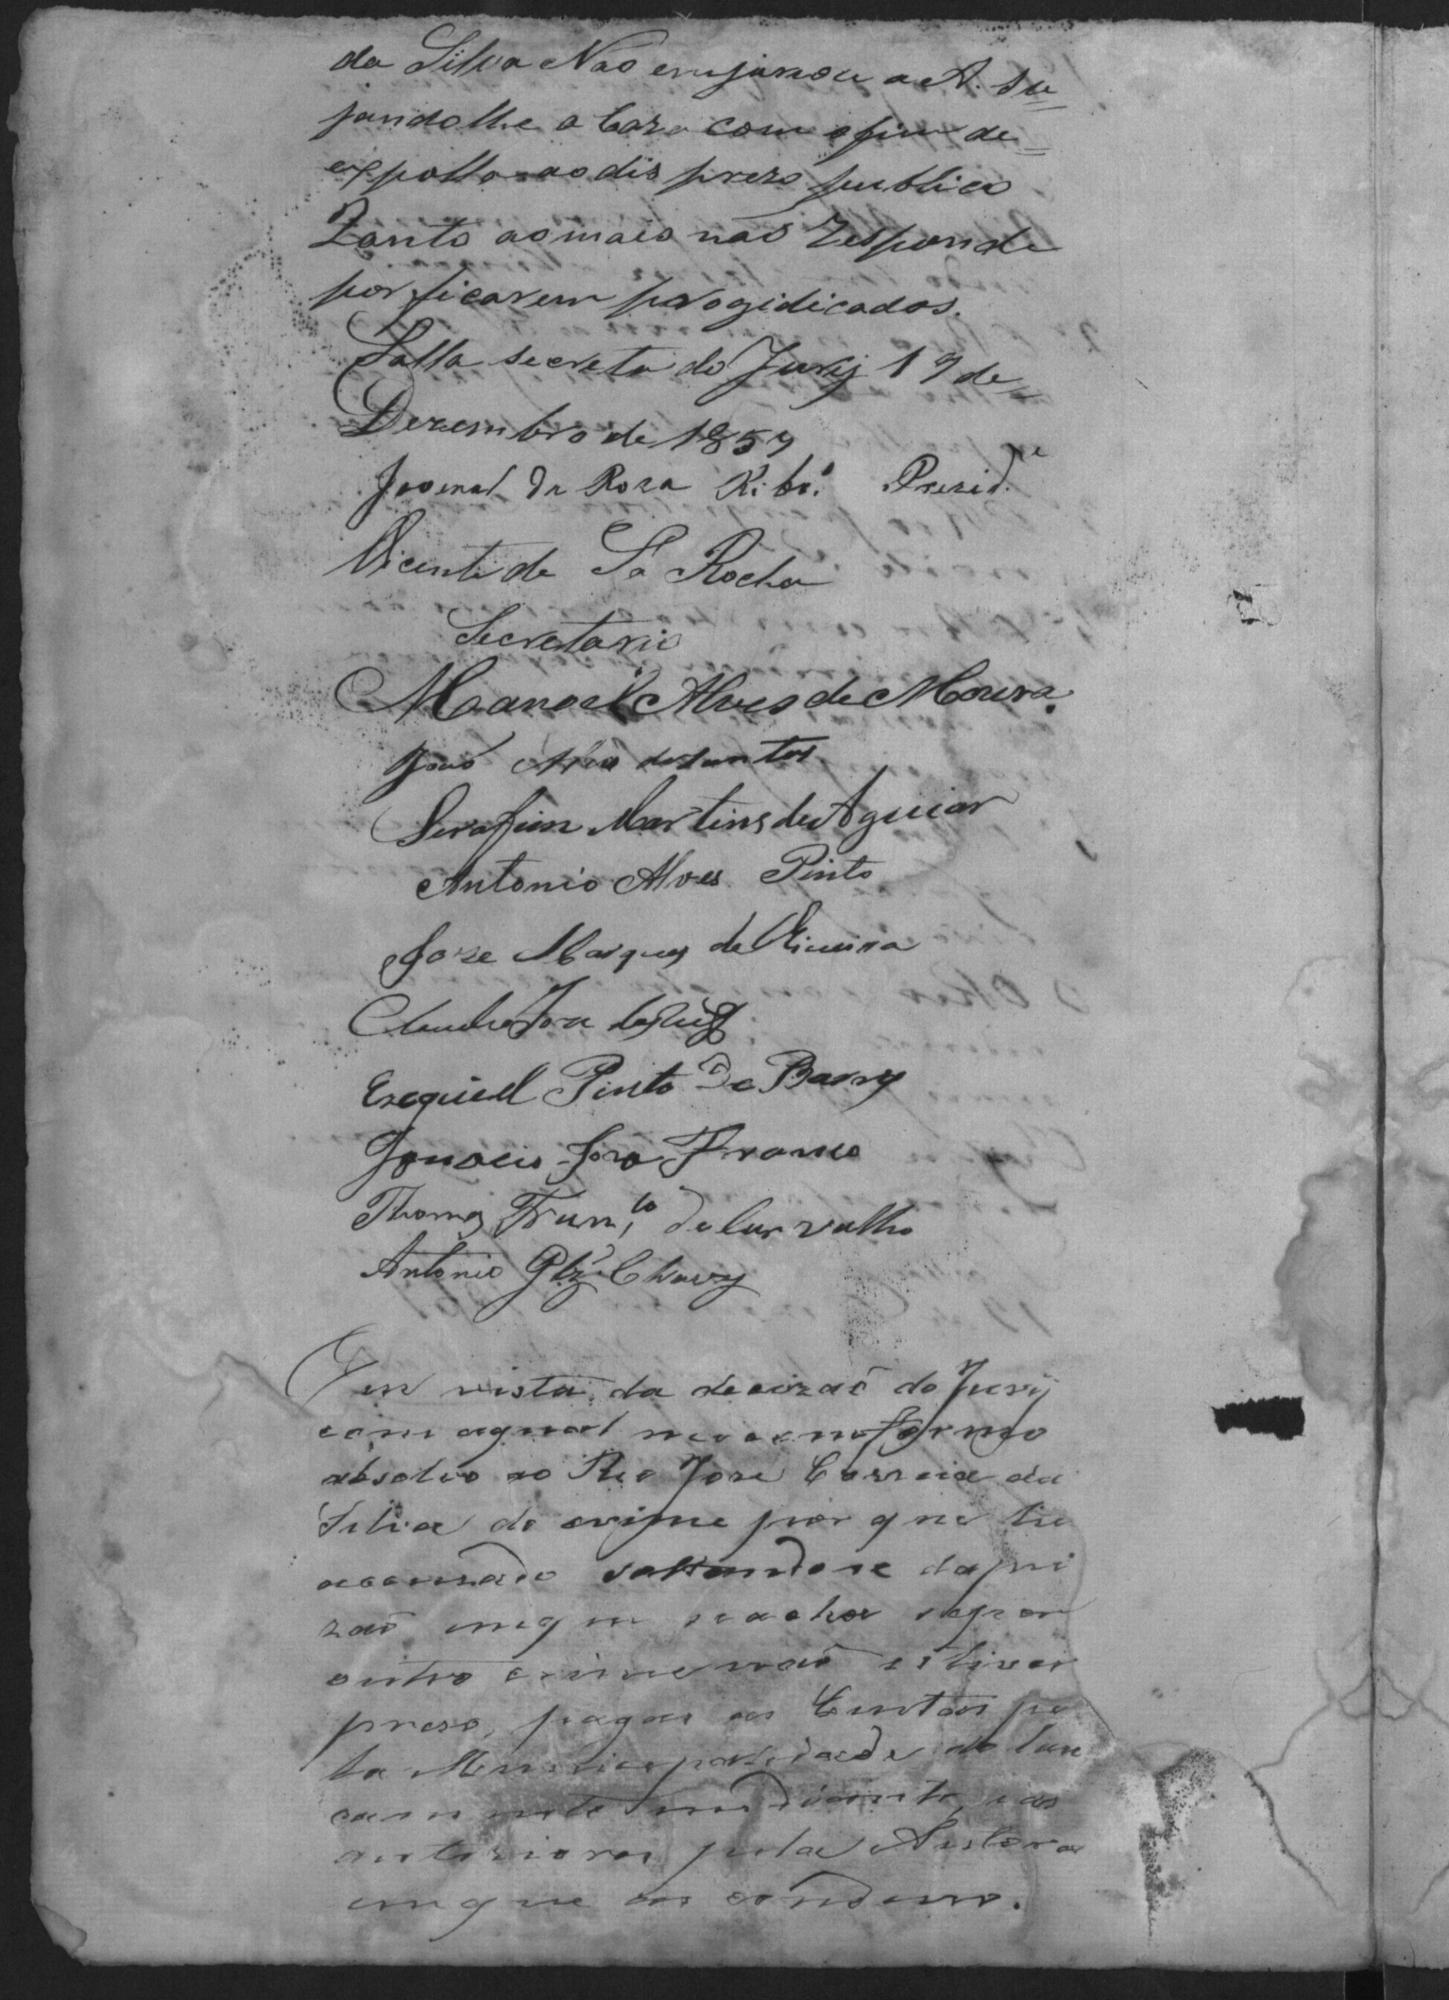 da Silva Não enujurou a A. su=
jandolhe a Caza com o fim de=
expolla ao dis prezo publico
Zanto aomais não Responde
por ficarem progidicados.
Salla secreta do Jury 19 de
Dezembro de 1859
Juvenal da Roza Ribr.o Prezid.e
Vicente de Sa Rocha
Secretario
Manoel Alves de Moura.
João dos Santos
Serafim Martins de Aguiar
Antonio Alves Pinto
Joze Marques de Oliveira
Claudio Joze
Ezequiel Pinto De Barros
Ignacio Joze Franco
Thomas de Carvalho
Antonio Chaves
Em vista da decizaõ do Jury
com aqual meconformo
absolvo ao Reo Jose Correia da
Silva do crime por que foi
accuzado soltandose da pri
zaõ emque seacha sepor
outro crime naõ estiver
preso, pagas as Custas pe
la Municipalidade do lan
camento endiante, e as
anteriores pela Autora
emque as condemno.